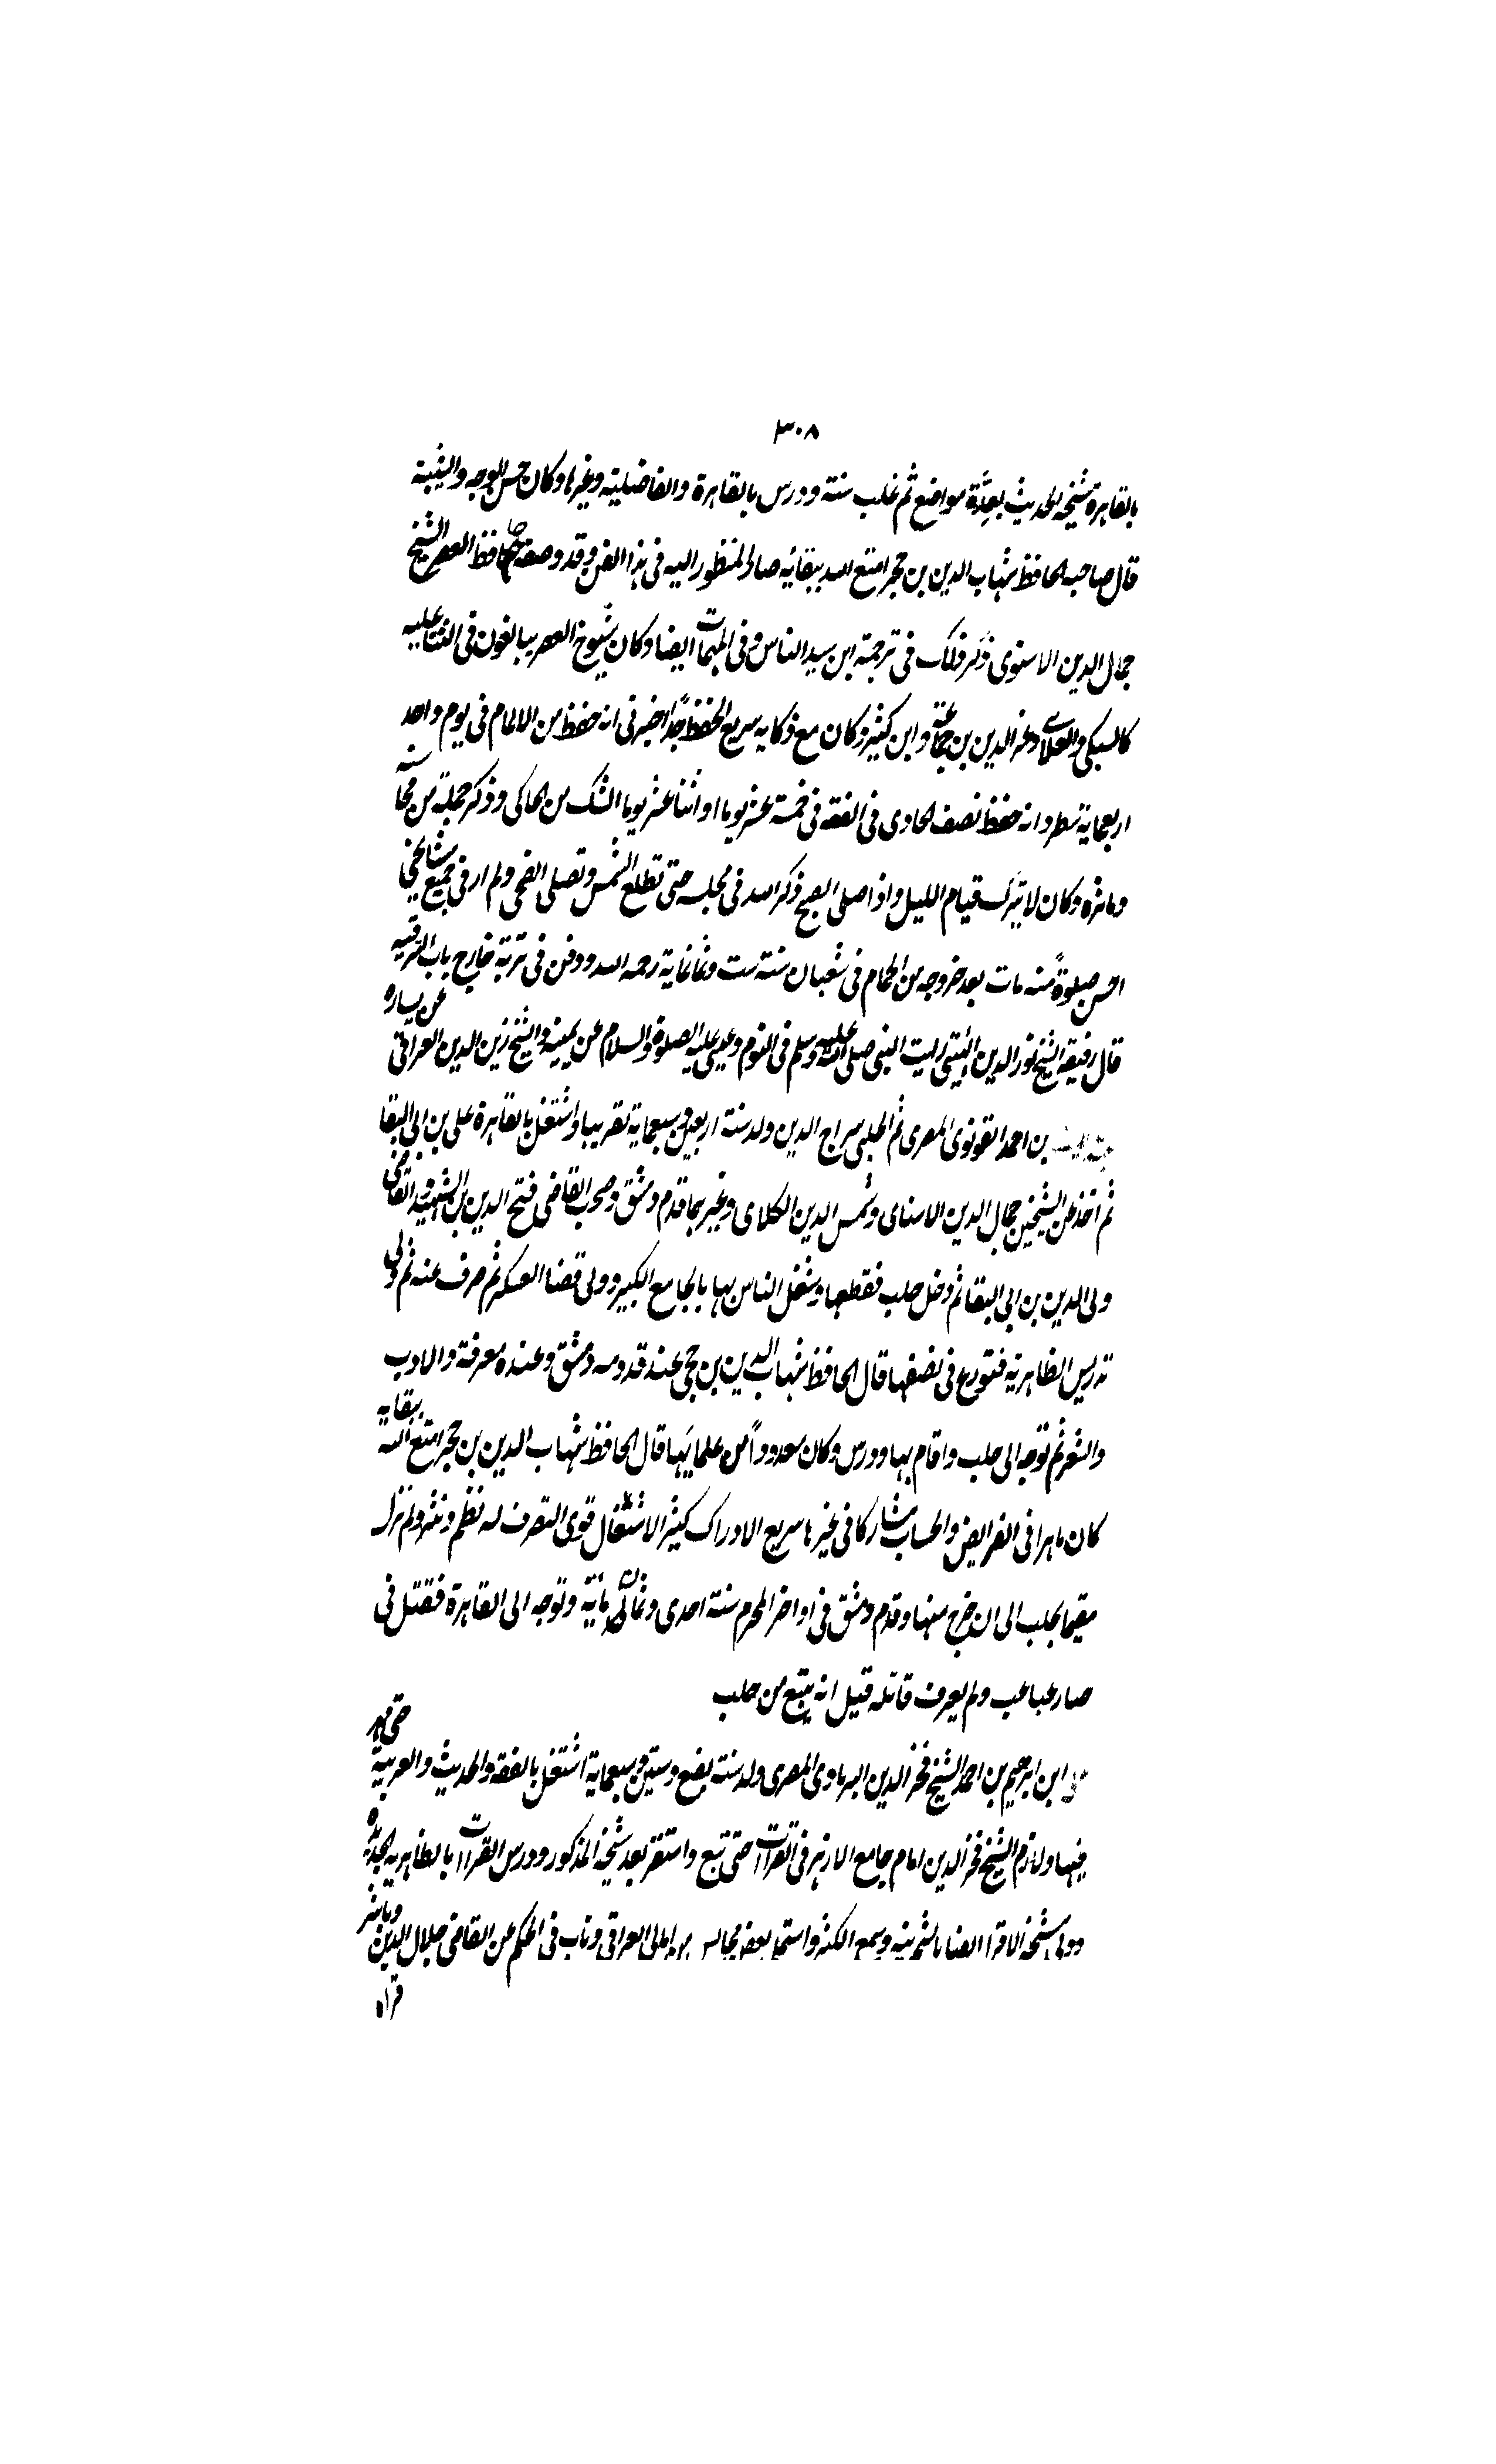 ٣٠٨
بالقاهرة مشيخة الحديث بعدّة مواضع ثم غلب سنة ودرس بالقاهرة والفاضلية وغيرها وكان حسن الوجه والشيبة
قال صاحبه الحافظ شهاب الدين بن حجر امتع الله ببقائه صار المنظور اليه في هذا الفن وقد وصفه حافظ العصر الشيخ
جمال الدين الاسنوى ذكر ذلك في ترجمة ابن سيد الناس وفي المهمات ايضا وكان شيوخ العصر يبالغون في الثنا عليه
كالسبكي والعلاى وعز الدين بن جماعة وابن كثير وكان مع ذكايه سريع الحفظ جدّا اخبرنى انه حفظ من الالمام في يوم واحد
اربعماية سطر وانه حفظ نصف الحاوى في الفقه في خمسة عشر يوما او اثنا عشر يوما الشك من الحاكى وذكر جملة من محاسنه
وماثره وكان لا يترك قيام الليل واذا صلى الصبح ذكر الله في مجلسه حتى تطلع الشمس وتصلى الضحى ولم ار في جميع مشايخى
احسن صلوةً منه مات بعد خروجه من الحمام في شعبان سنة ست وثمانماية رحمه الله ودفن في تربة خارج باب البرقية
قال رفيقه الشيخ نور الدين الهيتمى رايت النبى صلى الله عليه وسلم في النوم وعيسى عليه الصلوة والسلام عن يمينه والشيخ زين الدين العراقى عن يساره
بن احمد القونوى المصرى ثم الحلبى سراج الدين ولد سنة اربعين وسبعماية تقريبا واشتغل بالقاهرة على بن ابى البقا
ثم اخذ عن الشيخين جمال الدين الاسناى وشمس الدين الكلاى وغيرهما قدم دمشق وصحب القاضى فتح الدين بن الشهيد والقاضى
ولى الدين بن ابى البقا ثم دخل حلب فقطعها وشغل الناس بها بالجامع الكبير وولى قضا العسكر ثم صرف عنه ثم ولى
تدريس الظاهرية فتوزع في نصفها قال الحافظ شهاب الدين بن حجى عند قدومه دمشق وعنده معرفة والادب
والشعر ثم توجه الى حلب واقام بها ودرس وكان معدوداً من علمايها قال الحافظ شهاب الدين بن حجر امتع الله ببقايه
كان ماهرا في الفرايض والحساب مشاركا في غيرها سريع الادراك كثير الاشتغال قوى التصرف له نظم ونثر ولم نزل
مقيما بحلب الى ان خرج منها وقدم دمشق في اواخر المحرم سنة احدى وثمان مأية وتوجه الى القاهرة فقتل في
صار غباغب ولم يعرف قاتله قيل انه يتبع من حلب
ابن ابرهيم بن احمد الشيخ فخر الدين البرماوى المصرى ولد سنة بضع وستين وسبعماية اشتغل بالفقه والحديث والعربية حتى مهر
فيها ولازم الشيخ فخر الدين امام جامع الازهر في القراات حتى تبع واستقر بعد شيخه المذكور ودرس القراات بالظاهريه الجديده
وولى مشيخة الاقرا ايضا بالشيخونيه وسمع الكثير واستملى بعض مجالس امالى العراقى وناب في الحكم عن القاضى جلال الدين وباشر
قراه